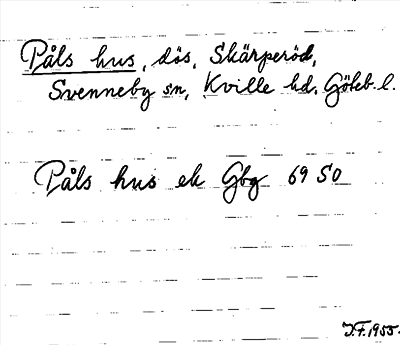 Påls hus, dös, Skärperöd,
Svenneby sn, Kville hd, Göteb. l.
Påls hus ek Gbg 69 SO
J.F. 1955.